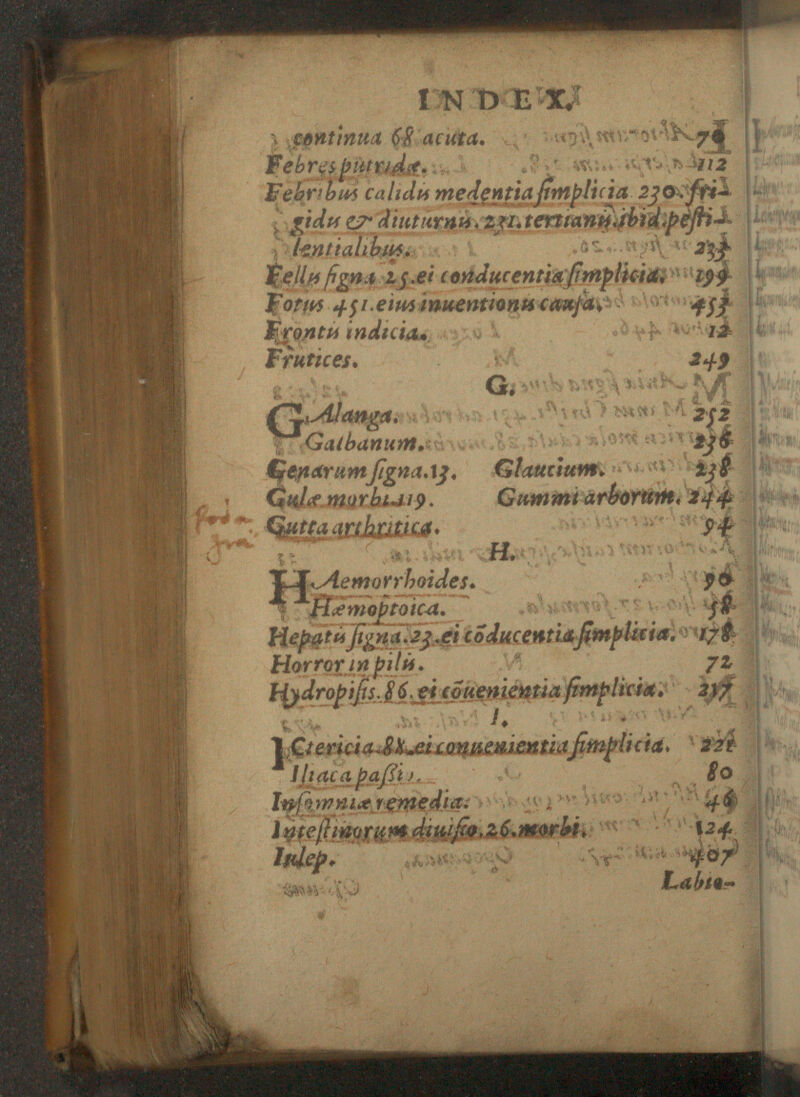 INDEX.
continua 68. acuta. 78
Febres putridæ. 112
Febribus calidis medentia simplicia. 230. fri-
gidis & diuturnis. 231. tertianis ibid. pesti-
lentialibus.
Fellis signa. 25. ei conducentia simplicia. 299
Fotus 451. eius inuentionis causa. 453
Frontis indicia.
Frutices. 249
G.
GAlanga. 252
Galbanum. 236
Genarum signa. 13. Glaucium. 238
Gulæ morbi. 119. Gummi arborum. 244
Gutta arthritica. 94
H.
HAemorrhoides.
Hæmoptoica.
Hepatis signa. 23. ei cōducentia simplicia.
Horror in pilis. 72
Hydropisis. 86. ei cōuenientia simplicia.
I.
ICtericia. 88. ei conuenientia simplicia.
Iliaca passio. 80
Insomniæ remedia.
Intestinorum diuisio. 26. morbi. 124
Iulep.
Labio-